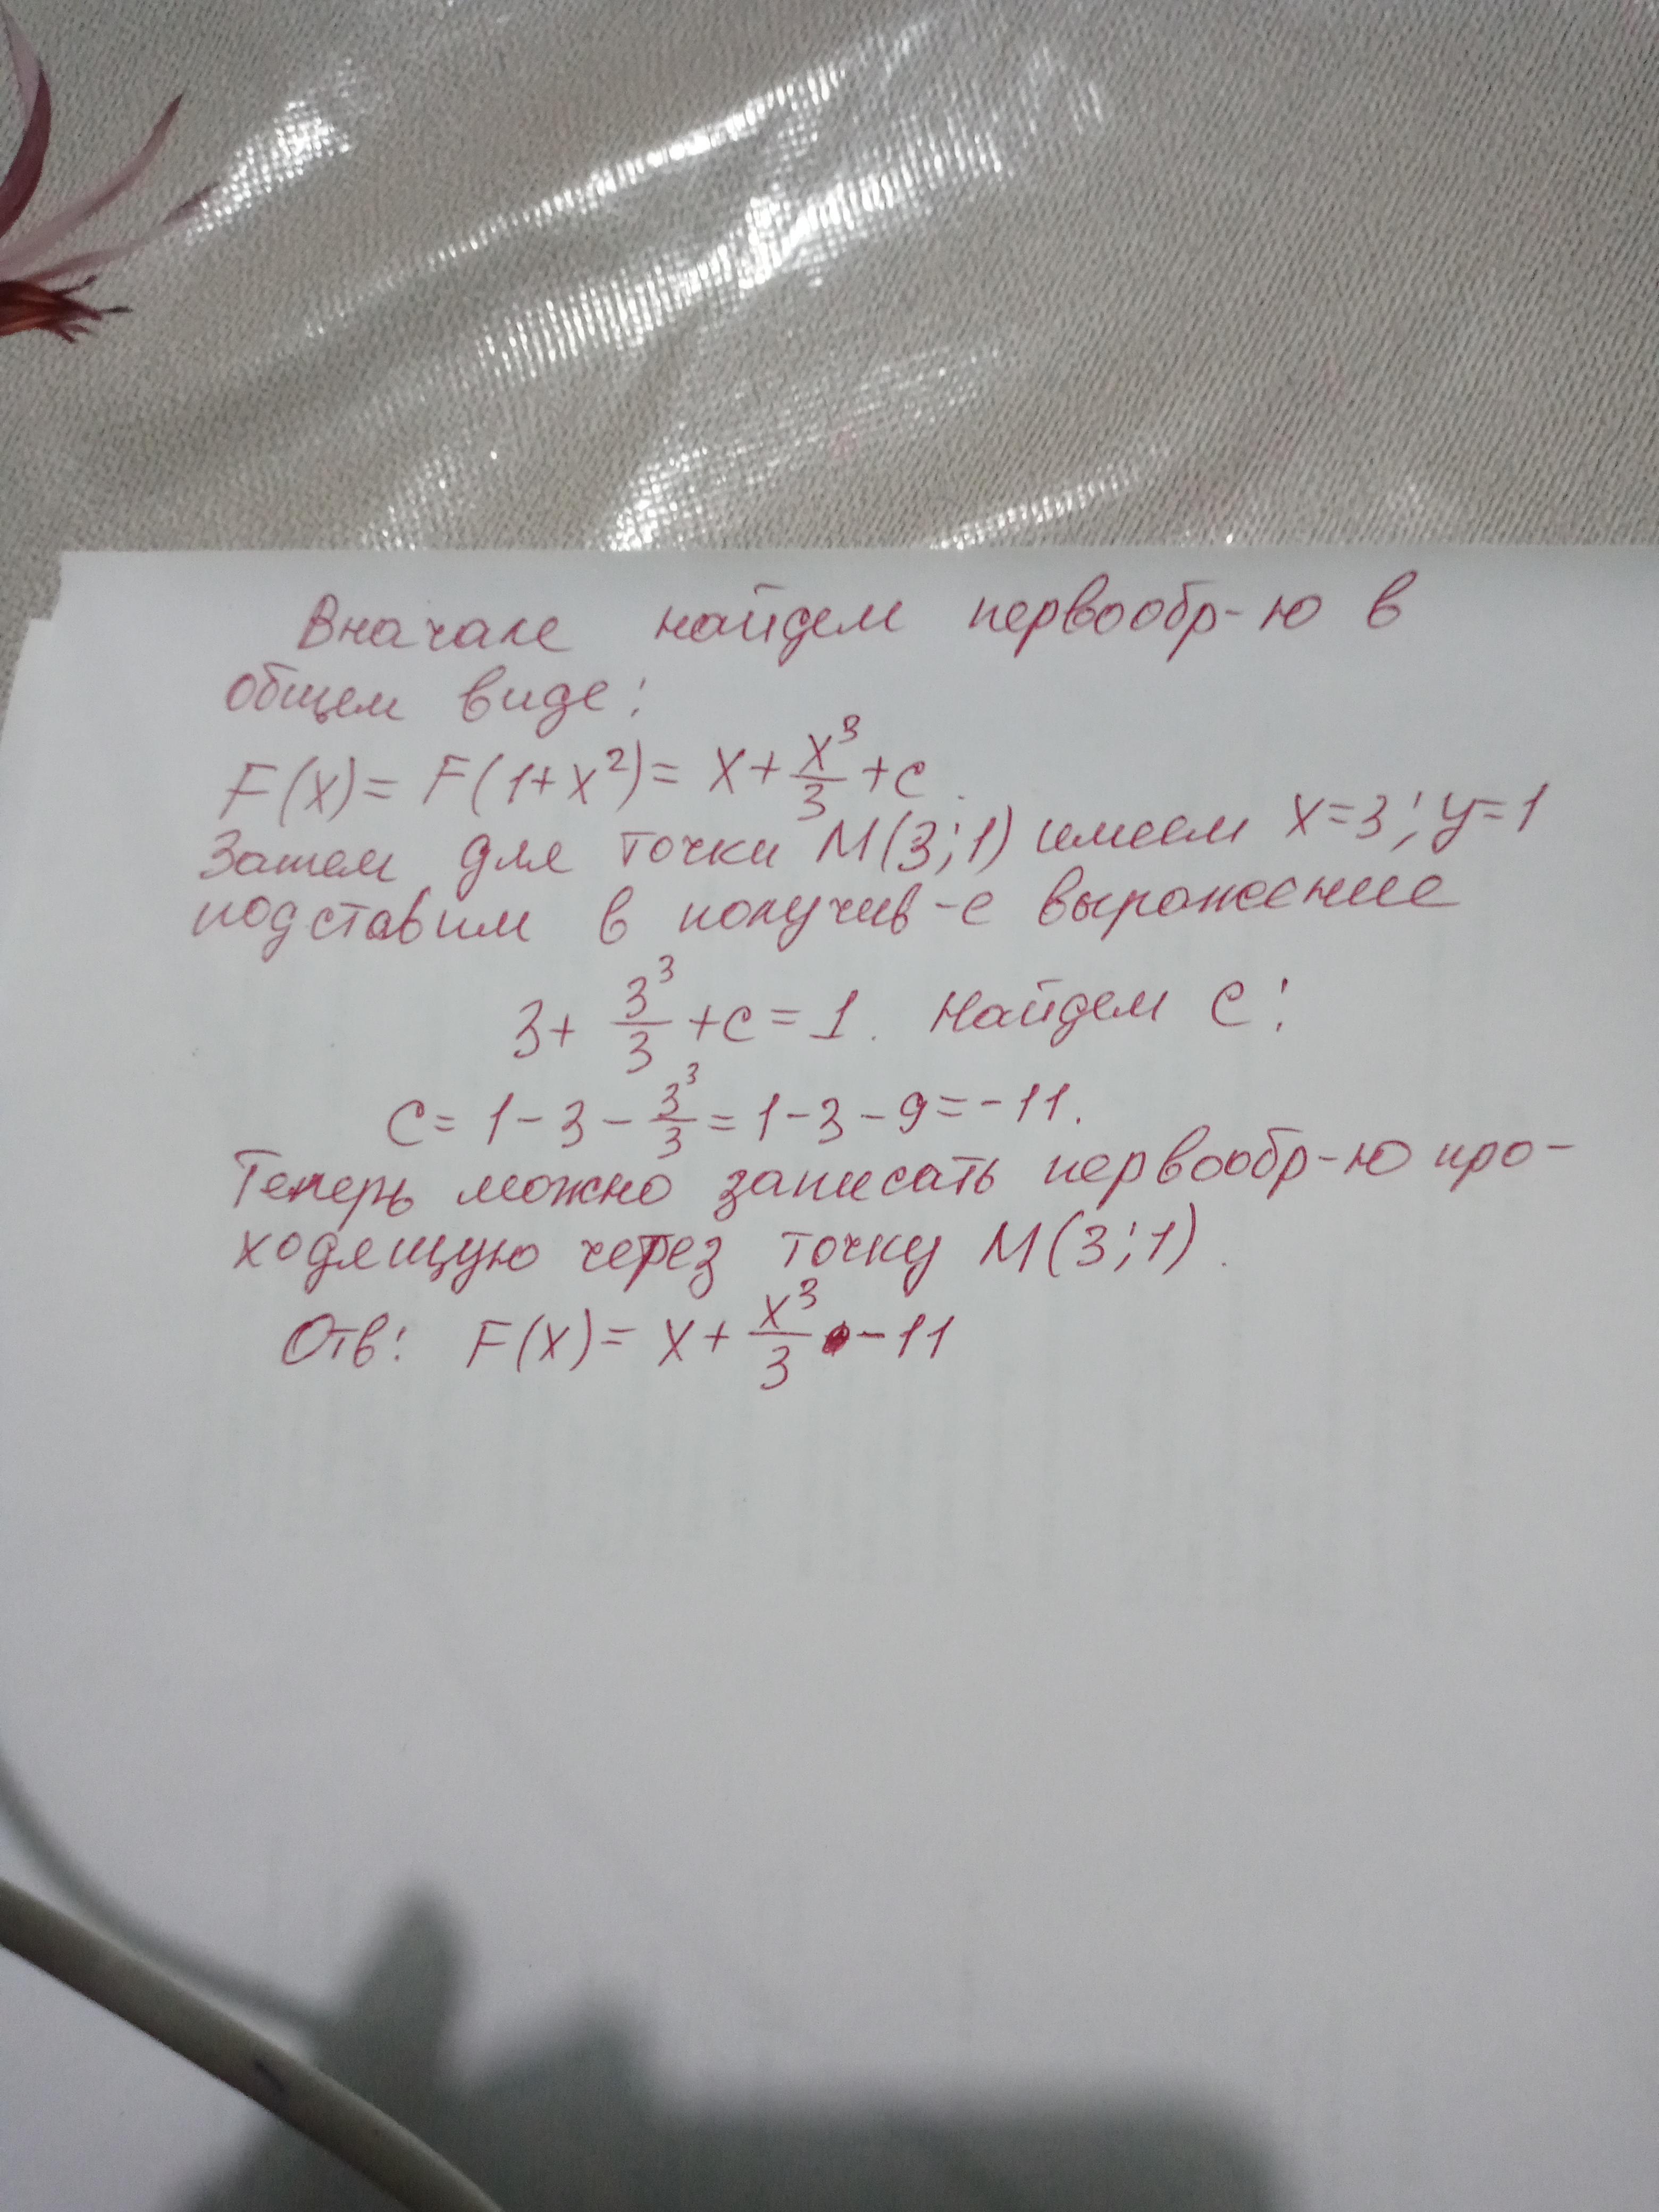 Вначале найдем первообр-ю в
общем виде:
F(x) = F(1+x²) = x + x³/3 + c.
Затем для точки M(3;1) имеем x=3; y=1
подставим в получив-е выражение
3 + 3³/3 + c = 1. Найдем c:
c = 1 - 3 - 3³/3 = 1 - 3 - 9 = -11.
Теперь можно записать первообр-ю про-
ходящую через точку M(3;1).
Отв: F(x) = x + x³/3 - 11